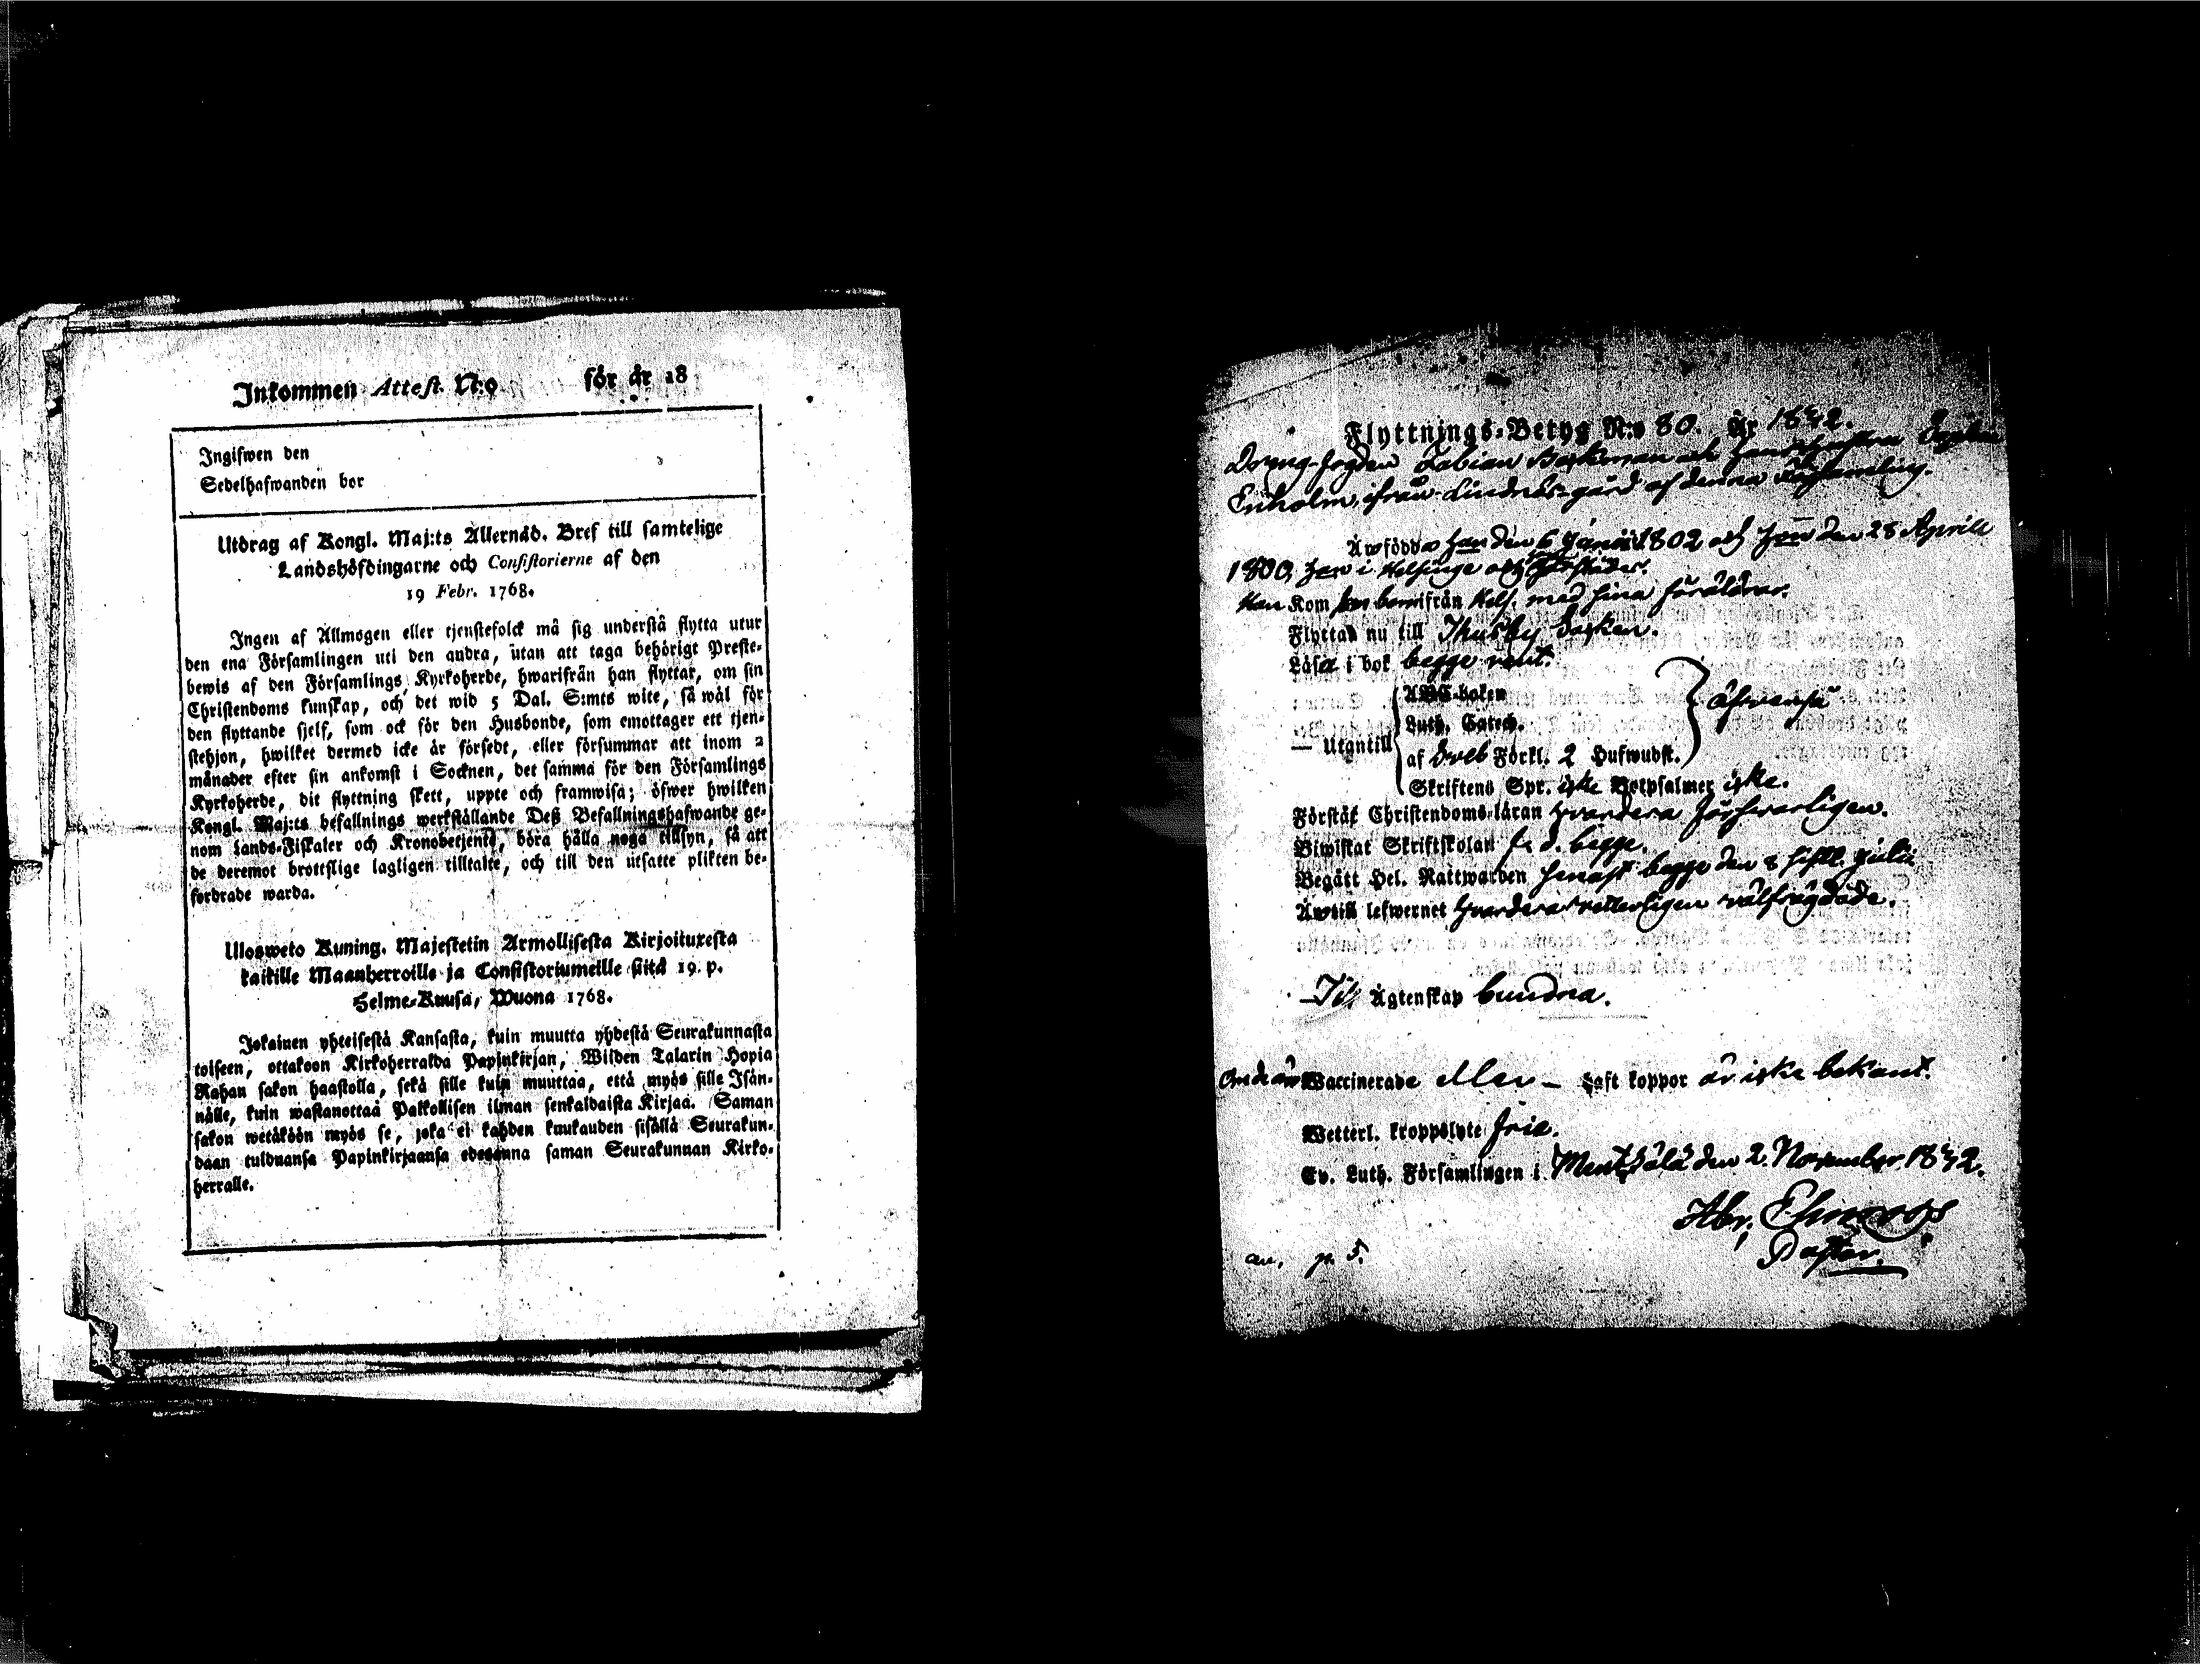 Inkommen Attest. N:o för år 18
Ingifwen den
Sedelhafwanden bor
Utdrag af Kongl. Maj:ts Allernåd. Bref till samtelige
Landshöfdingarne och Consistorierne af den
19 Febr. 1768.
Ingen af Allmogen eller tjenstefolck må sig understå flytta utur
den ena Församlingen uti den andra, utan att taga behörigt Preste-
bewis af den Församlings Kyrkoherde, hwarifrån han flyttar, om sin
Christendoms kunskap, och det wid 5 Dal. S:mts wite, så wäl för
den flyttande sjelf, som ock för den Husbonde, som emottager ett tjen-
stehjon, hwilket dermed icke är försedt, eller försummar att inom 2
månader efter sin ankomst i Socknen, det samma för den Församlings
Kyrkoherde, dit flyttning skett, uppte och framwisa; öfwer hwilken
Kongl. Maj:ts befallnings werkställande Deß Befallningshafwande ge-
nom Lands-Fiskaler och Kronobetjente, böra hålla noga tillsyn, så att
de deremot brottslige lagligen tilltalte, och till den utsatte plikten be-
fordrade warda.
Ulosweto Kuning. Majestetin Armollisesta Kirjoituxesta
kaikille Maanherroille ja Consistoriumeille siitä 19. p.
Helme-Kuusa, Wuona 1768.
Jokainen yhteisestä Kansasta, kuin muutta yhdestä Seurakunnasta
toiseen, ottakoon Kirkoherralda Papinkirjan, Wiiden Talarin Hopia
Rahan sakon haastolla, sekä sille kuin muuttaa, että myös sille Isän-
nälle, kuin wastanottaa Palkollisen ilman senkaldaista Kirjaa. Saman
sakon wetäköön myös se, joka ei kahden kuukauden sisällä Seurakun-
daan tulduansa Papinkirjaansa edesanna saman Seurakunnan Kirko-
herralle.
Flyttnings-Betyg N:o 80. År 1842.
Dreng-fogden Fabian Backman och hans hustru Sophia
Enholm, ifrån Lindnäs-gård af denna Församling.
Äro födda han den 6 Junii 1802 och hon den 28 Aprill
1800, han i Helsinge och
Han Kom som barn ifrån Hels. med sina föräldrar.
Flyttad nu till Thusby Socken.
Läsa i bok begge rent.
— Utantill
ABC-boken
Luth. Catech.
af Sveb Förkl. 2 Hufwudst.
äfvenså
Skriftens Spr. icke Botpsalmer icke.
Förstår Christendoms-läran hvardera försvarligen.
Biwistat Skriftskolan f. d. begge.
Begått Hel. Nattwarden senast begge den 8 sistl. Julii
Äwtill lefwernet hvardera vetterligen välfrägdade.
Till Ägtenskap bundna.
Om de äro Waccinerade eller — haft koppor är icke bekant.
Wetterl. kroppslyte fria.
Ev. Luth. Församlingen i Mentzälä den 2. November 1842.
Abr. Elmgren
Pastor.
an. p. 5.